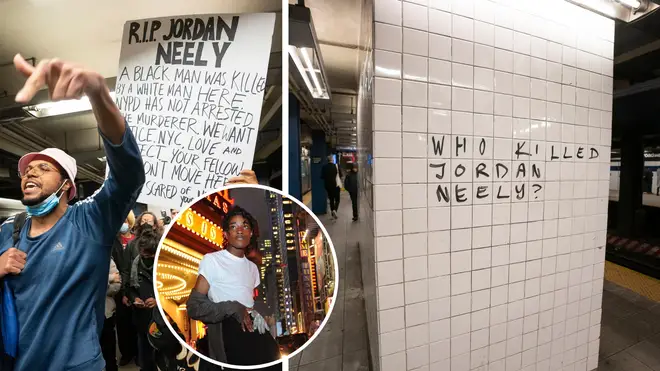 R.I.P. JORDAN
NEELY
A BLACK MAN WAS KILLED
BY A WHITE MAN HERE.
NYPD HAS NOT ARRESTED
MURDERER. WE WANT
NYC. LOVE AND
YOUR FELLOW
DON'T MOVE HERE
SCARED OF
WHO KILLED
JORDAN
NEELY?